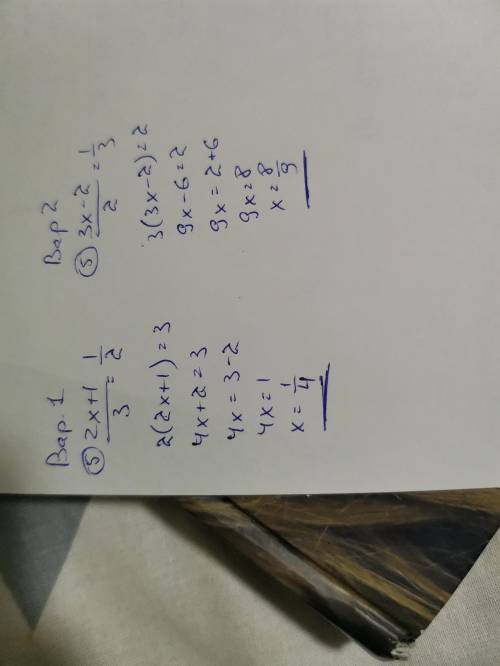 Вар. 1
⑤ (2x+1)/3 = 1/2
2(2x+1)=3
4x+2=3
4x=3-2
4x=1
x=1/4
Вар 2
⑤ (3x-2)/2 = 1/3
3(3x-2)=2
9x-6=2
9x=2+6
9x=8
x=8/9